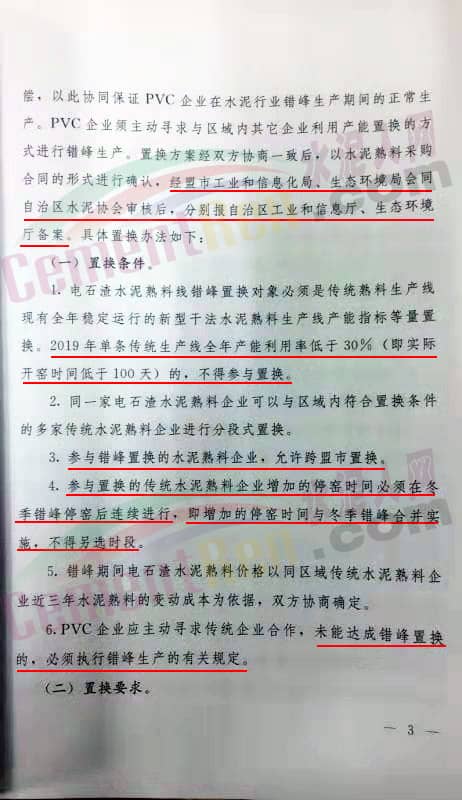 偿，以此协同保证PVC企业在水泥行业错峰生产期间的正常生
产。PVC企业须主动寻求与区域内其它企业利用产能置换的方
式进行错峰生产。置换方案经双方协商一致后，以水泥熟料采购
合同的形式进行确认，经盟市工业和信息化局、生态环境局会同
自治区水泥协会审核后，分别报自治区工业和信息厅、生态环境
厅备案。具体置换办法如下：
（一）置换条件.
1. 电石渣水泥熟料线错峰置换对象必须是传统熟料生产线
现有全年稳定运行的新型干法水泥熟料生产线产能指标等量置
换。2019年单条传统生产线全年产能利用率低于30%（即实际
开窑时间低于100天）的，不得参与置换。
2. 同一家电石渣水泥熟料企业可以与区域内符合置换条件
的多家传统水泥熟料企业进行分段式置换。
3. 参与错峰置换的水泥熟料企业，允许跨盟市置换。
4. 参与置换的传统水泥熟料企业增加的停窑时间必须在冬
季错峰停窑后连续进行，即增加的停窑时间与冬季错峰合并实
施，不得另选时段。
5. 错峰期间电石渣水泥熟料价格以同区域传统水泥熟料企
业近三年水泥熟料的变动成本为依据，双方协商确定。
6.PVC企业应主动寻求传统企业合作，未能达成错峰置换
的，必须执行错峰生产的有关规定。
（二）置换要求。
— 3 —
CementRen.com
水泥人网
CementRen.com
水泥人网